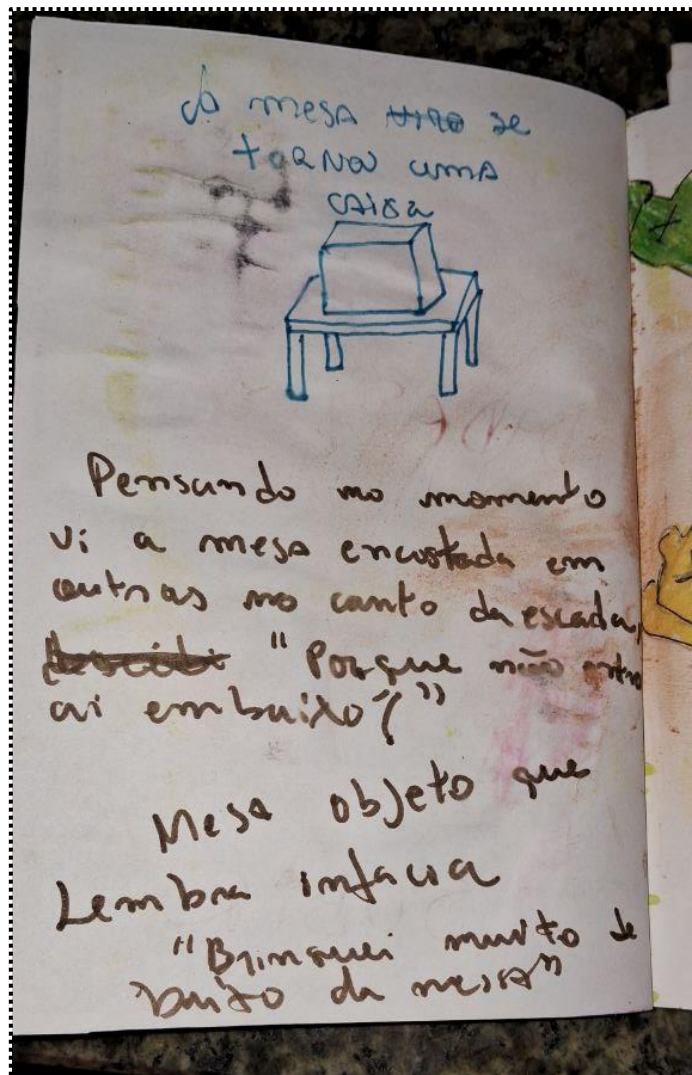 A mesa viro se
torna uma
caixa
Pensando no momento
vi a mesa encostada em
outras no canto da escada,
"Porque não entro
ai embaixo?"
Mesa objeto que
Lembra infacia
"Brinquei muito de
baixo da messa"